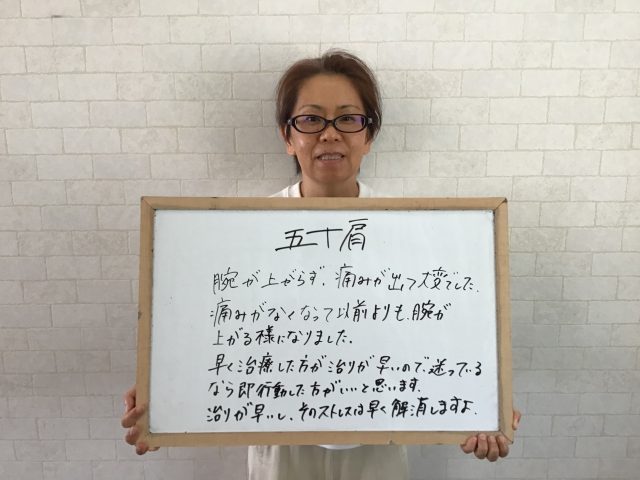 五十肩
腕が上がらず、痛みが出て大変でした。
痛みがなくなって以前よりも、腕が
上がる様になりました。
早く治療した方が治りが早いので、迷っている
なら即行動した方がいいと思います。
治りが早いし、そのストレスは早く解消しますよ。